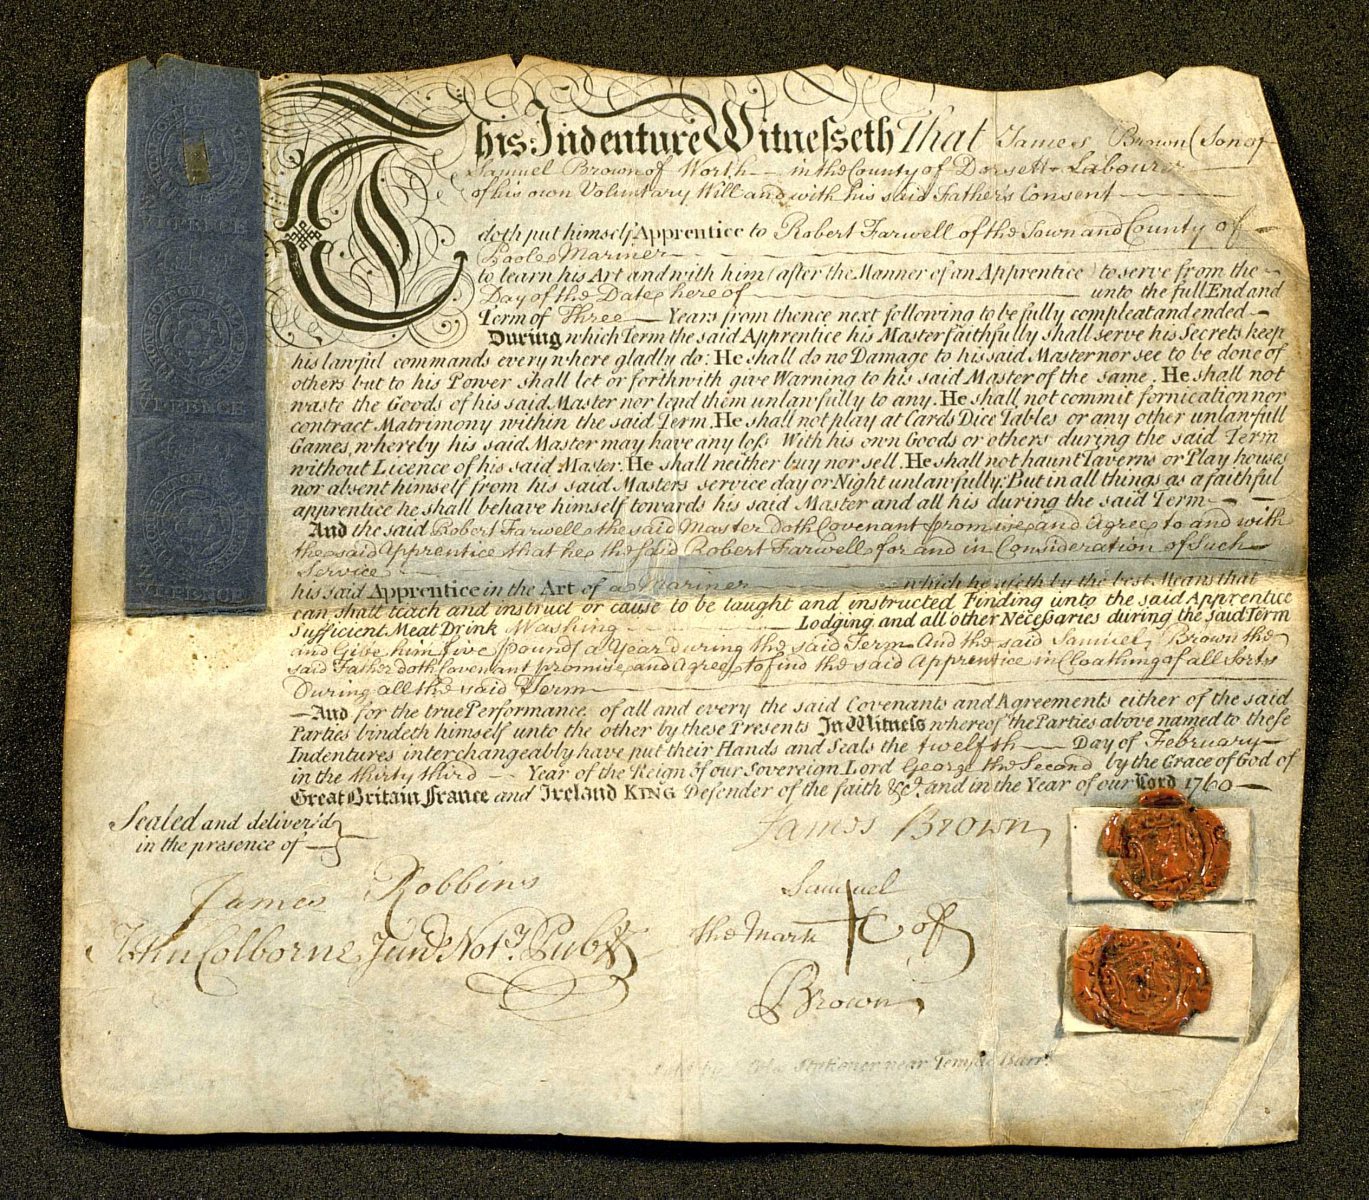 This Indenture Witnesseth That James Brown (Son of
Samuel Brown of Worth in the County of Dorsett Labourer
of his own Voluntary Will and with his said Father's Consent
doth put himself Apprentice to Robert Farwell of the Town and County of
Poole Mariner
to learn his Art and with him (after the Manner of an Apprentice) to serve from the
Day of the Date hereof unto the full End and
Term of Three Years from thence next following to be fully compleat and ended
During which Term the said Apprentice his Master faithfully shall serve his Secrets keep
his lawful commands every where gladly do: He shall do no Damage to his said Master nor see to be done of
others but to his Power shall let or forthwith give Warning to his said Master of the same. He shall not
waste the Goods of his said Master nor lend them unlawfully to any. He shall not commit fornication nor
contract Matrimony within the said Term. He shall not play at Cards Dice Tables or any other unlawfull
Games, whereby his said Master may have any loss With his own Goods or others during the said Term
without Licence of his said Master. He shall neither buy nor sell. He shall not haunt Taverns or Play houses
nor absent himself from his said Masters service day or Night unlawfully: But in all things as a faithful
apprentice he shall behave himself towards his said Master and all his during the said Term
And the said Robert Farwell the said Master Doth Covenant promise and Agree to and with
the said Apprentice that he the said Robert Farwell for and in Consideration of Such
Service
his said Apprentice in the Art of a Mariner which he useth by the best Means that
can shall teach and instruct or cause to be taught and instructed Finding unto the said Apprentice
sufficient Meat Drink Washing Lodging and all other Necessaries during the said Term
and Give him five pounds a Year during the said Term And the said Samuel Brown the
said Father doth Covenant promise and Agree to find the said Apprentice in Cloathing of all Sorts
During all the said Term
And for the true Performance of all and every the said Covenants and Agreements either of the said
Parties bindeth himself unto the other by these Presents In Witness whereof the Parties above named to these
Indentures interchangeably have put their Hands and Seals the twelfth Day of February
in the thirty third Year of the Reign of our Sovereign Lord George the Second by the Grace of God of
Great Britain France and Ireland KING Defender of the faith &c. and in the Year of our Lord 1760
Sealed and deliver'd
in the presence of
James Brown
James Robbins
John Colborne Junr. Noty. Pub
Samuel
the Mark of
Brown
Stationer near Temple Barr